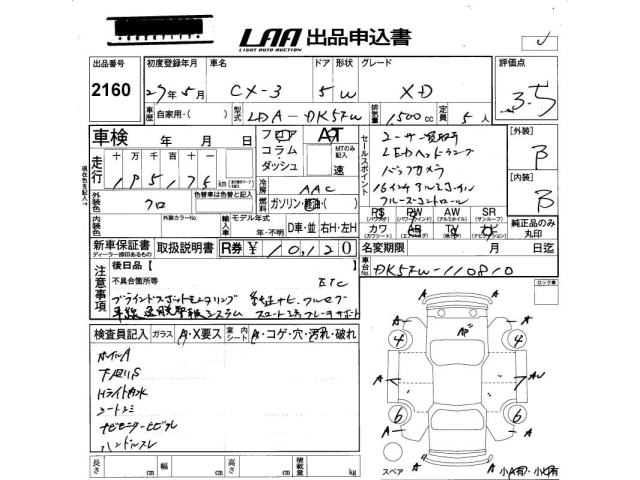 LAA 出品申込書
LIGHT AUTO AUCTION
出品番号
2160
初度登録年月
27年5月
車名
CX-3
ドア 形状
5 W
グレード
XD
評価点
3.5
車歴
自家用・( )
型式
LDA-DK5FW
排気量
1,500 cc
定員
5 人
車検
年 月 日
走行
十 万 千 百 十 一
195175
km
フロア AT
コラム・
ダッシュ
MTのみ記入
速
セールスポイント
ユーザー買取車
LEDヘッドランプ
バックカメラ
16インチアルミホイール
クルーズコントロール
[外装]
B
[内装]
B
外装色
クロ
色替車は色替と記入
冷房
AAC
燃料
ガソリン・軽油・( )
内装色
外装カラーNo.
輸入車
モデル年式
年・不明
D車・並
右H・左H
PS PW AW SR
(パワステ) (パワーウインド) (アルミホイル) (サンルーフ)
カワ AB TV ナビ
(カワシート) (エアバッグ) (テレビ) (ナビゲーション)
純正品のみ
丸印
新車保証書
ディーラー捺印あるもの
取扱説明書
R券
¥10,120
名変期限
月 日迄
車台No.
DK5FW-110810
注意事項
後日品【
不具合箇所等
ETC
ブラインドスポットモニタリング 純正ナビ フルセグ
車線逸脱警報システム スマートシティブレーキサポート
ロック車
検査員記入
ガラス
A・X要ス
室内シート
A・コゲ・穴・汚れ・破れ
ホイルA
下廻りS
Hライト内水
シートシミ
ハンドルスレ
長さ cm
幅 cm
高さ cm
積載量 kg
スペア
小A有・小E有
4
4
6
6
A
AP
A
A
AU
A
A
A
A